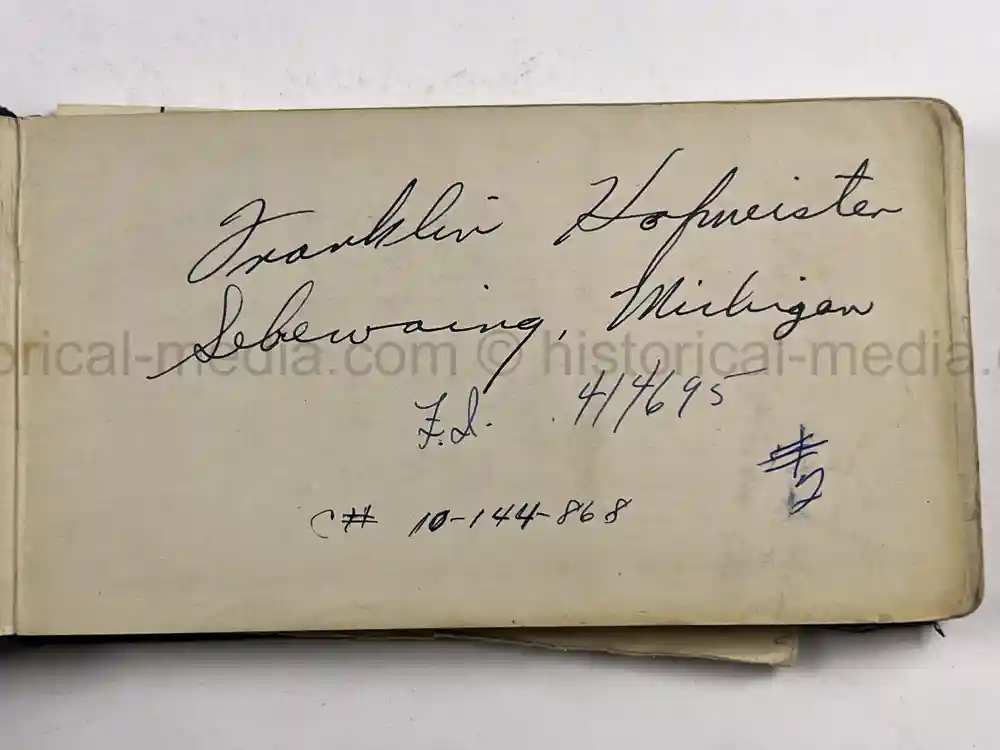 Franklin Hofmeister
Sebewaing, Michigan
orical-media.com © historical-media.c
F.S. 414695
#2
C# 10-144-868